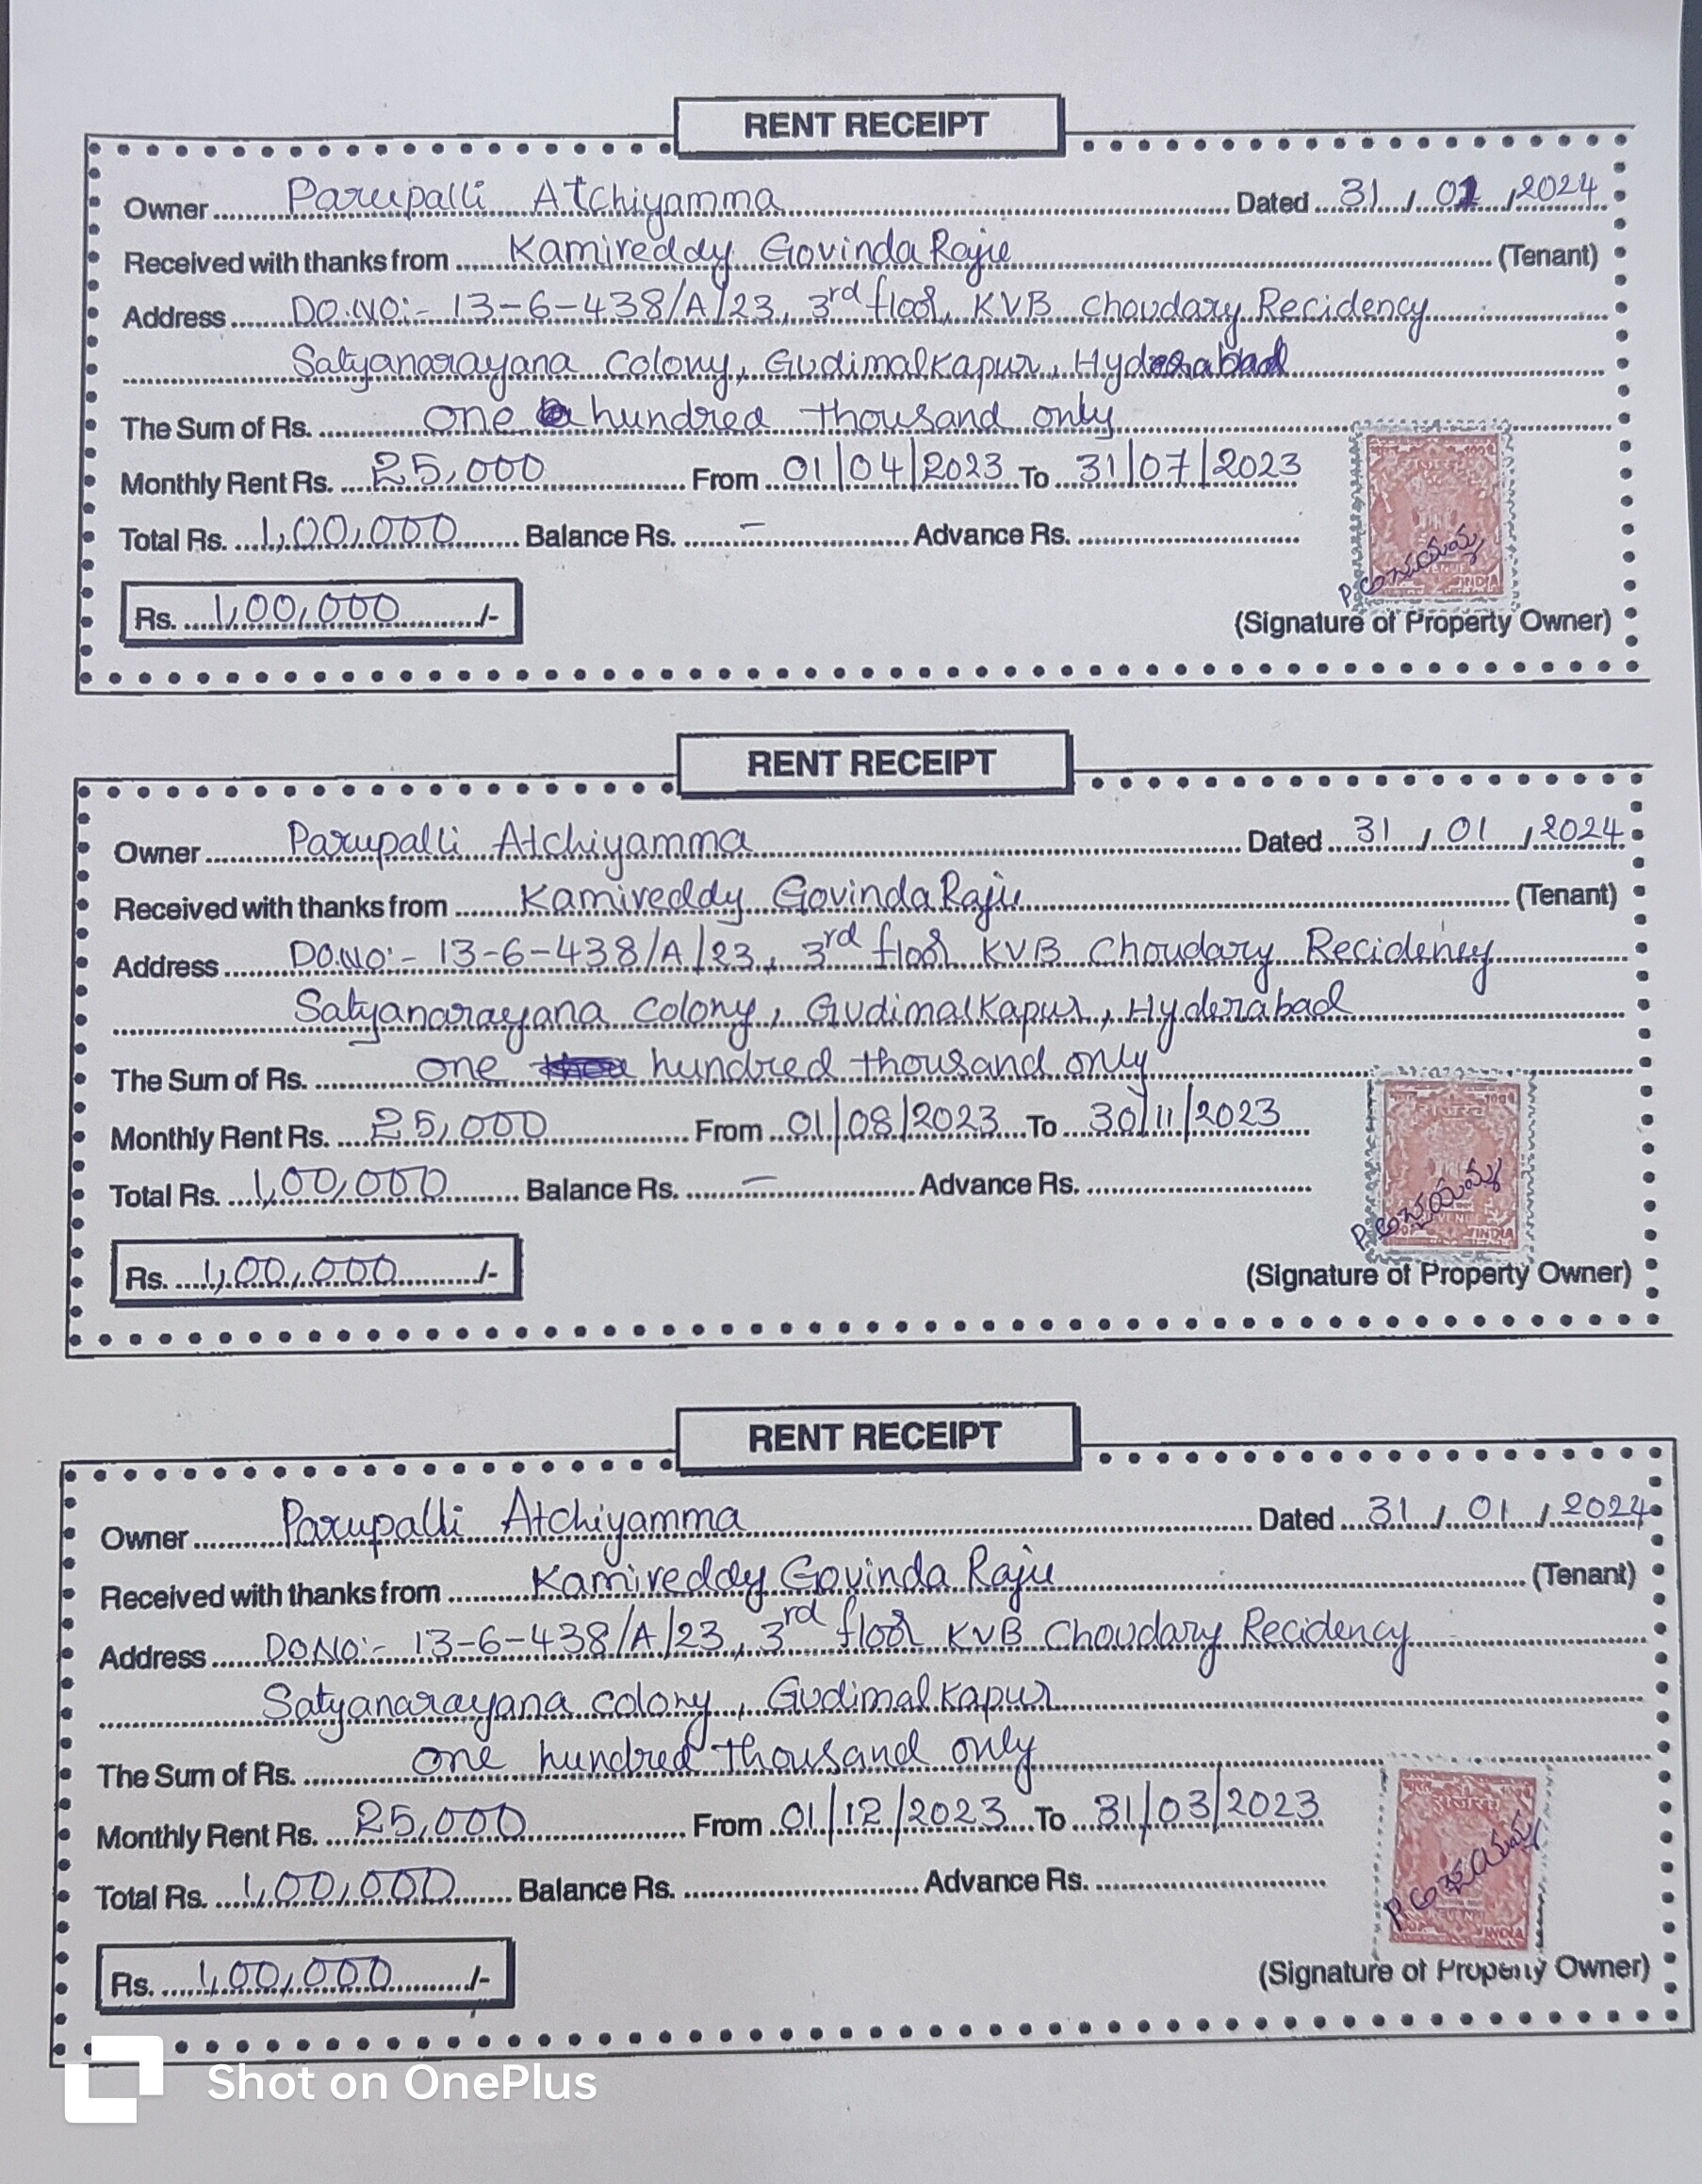 RENT RECEIPT
Owner Parupalli Atchiyamma Dated 31 / 01 / 2024
Received with thanks from Kamireddy Govinda Raju (Tenant)
Address DO.NO:- 13-6-438/A/23, 3rd floor, KVB Choudary Recidency
Satyanarayana Colony, Gudimalkapur, Hyderabad
The Sum of Rs. one hundred thousand only
Monthly Rent Rs. 25,000 From 01/04/2023 To 31/07/2023
Total Rs. 1,00,000 Balance Rs. – Advance Rs.
INDIA
P. అచ్చయమ్మ
Rs. 1,00,000 /-
(Signature of Property Owner)
RENT RECEIPT
Owner Parupalli Atchiyamma Dated 31 / 01 / 2024
Received with thanks from Kamireddy Govinda Raju (Tenant)
Address DO.NO:- 13-6-438/A/23, 3rd floor KVB Choudary Recidency
Satyanarayana Colony, Gudimalkapur, Hyderabad
The Sum of Rs. one hundred thousand only
Monthly Rent Rs. 25,000 From 01/08/2023 To 30/11/2023
Total Rs. 1,00,000 Balance Rs. – Advance Rs.
INDIA
P. అచ్చయమ్మ
Rs. 1,00,000 /-
(Signature of Property Owner)
RENT RECEIPT
Owner Parupalli Atchiyamma Dated 31 / 01 / 2024
Received with thanks from Kamireddy Govinda Raju (Tenant)
Address DO.NO:- 13-6-438/A/23, 3rd floor KVB Choudary Recidency
Satyanarayana colony, Gudimalkapur
The Sum of Rs. one hundred thousand only
Monthly Rent Rs. 25,000 From 01/12/2023 To 31/03/2023
भारत
राजस्व
Total Rs. 1,00,000 Balance Rs. Advance Rs.
P. అచ్చయమ్మ
INDIA
Rs. 1,00,000 /-
(Signature of Property Owner)
Shot on OnePlus